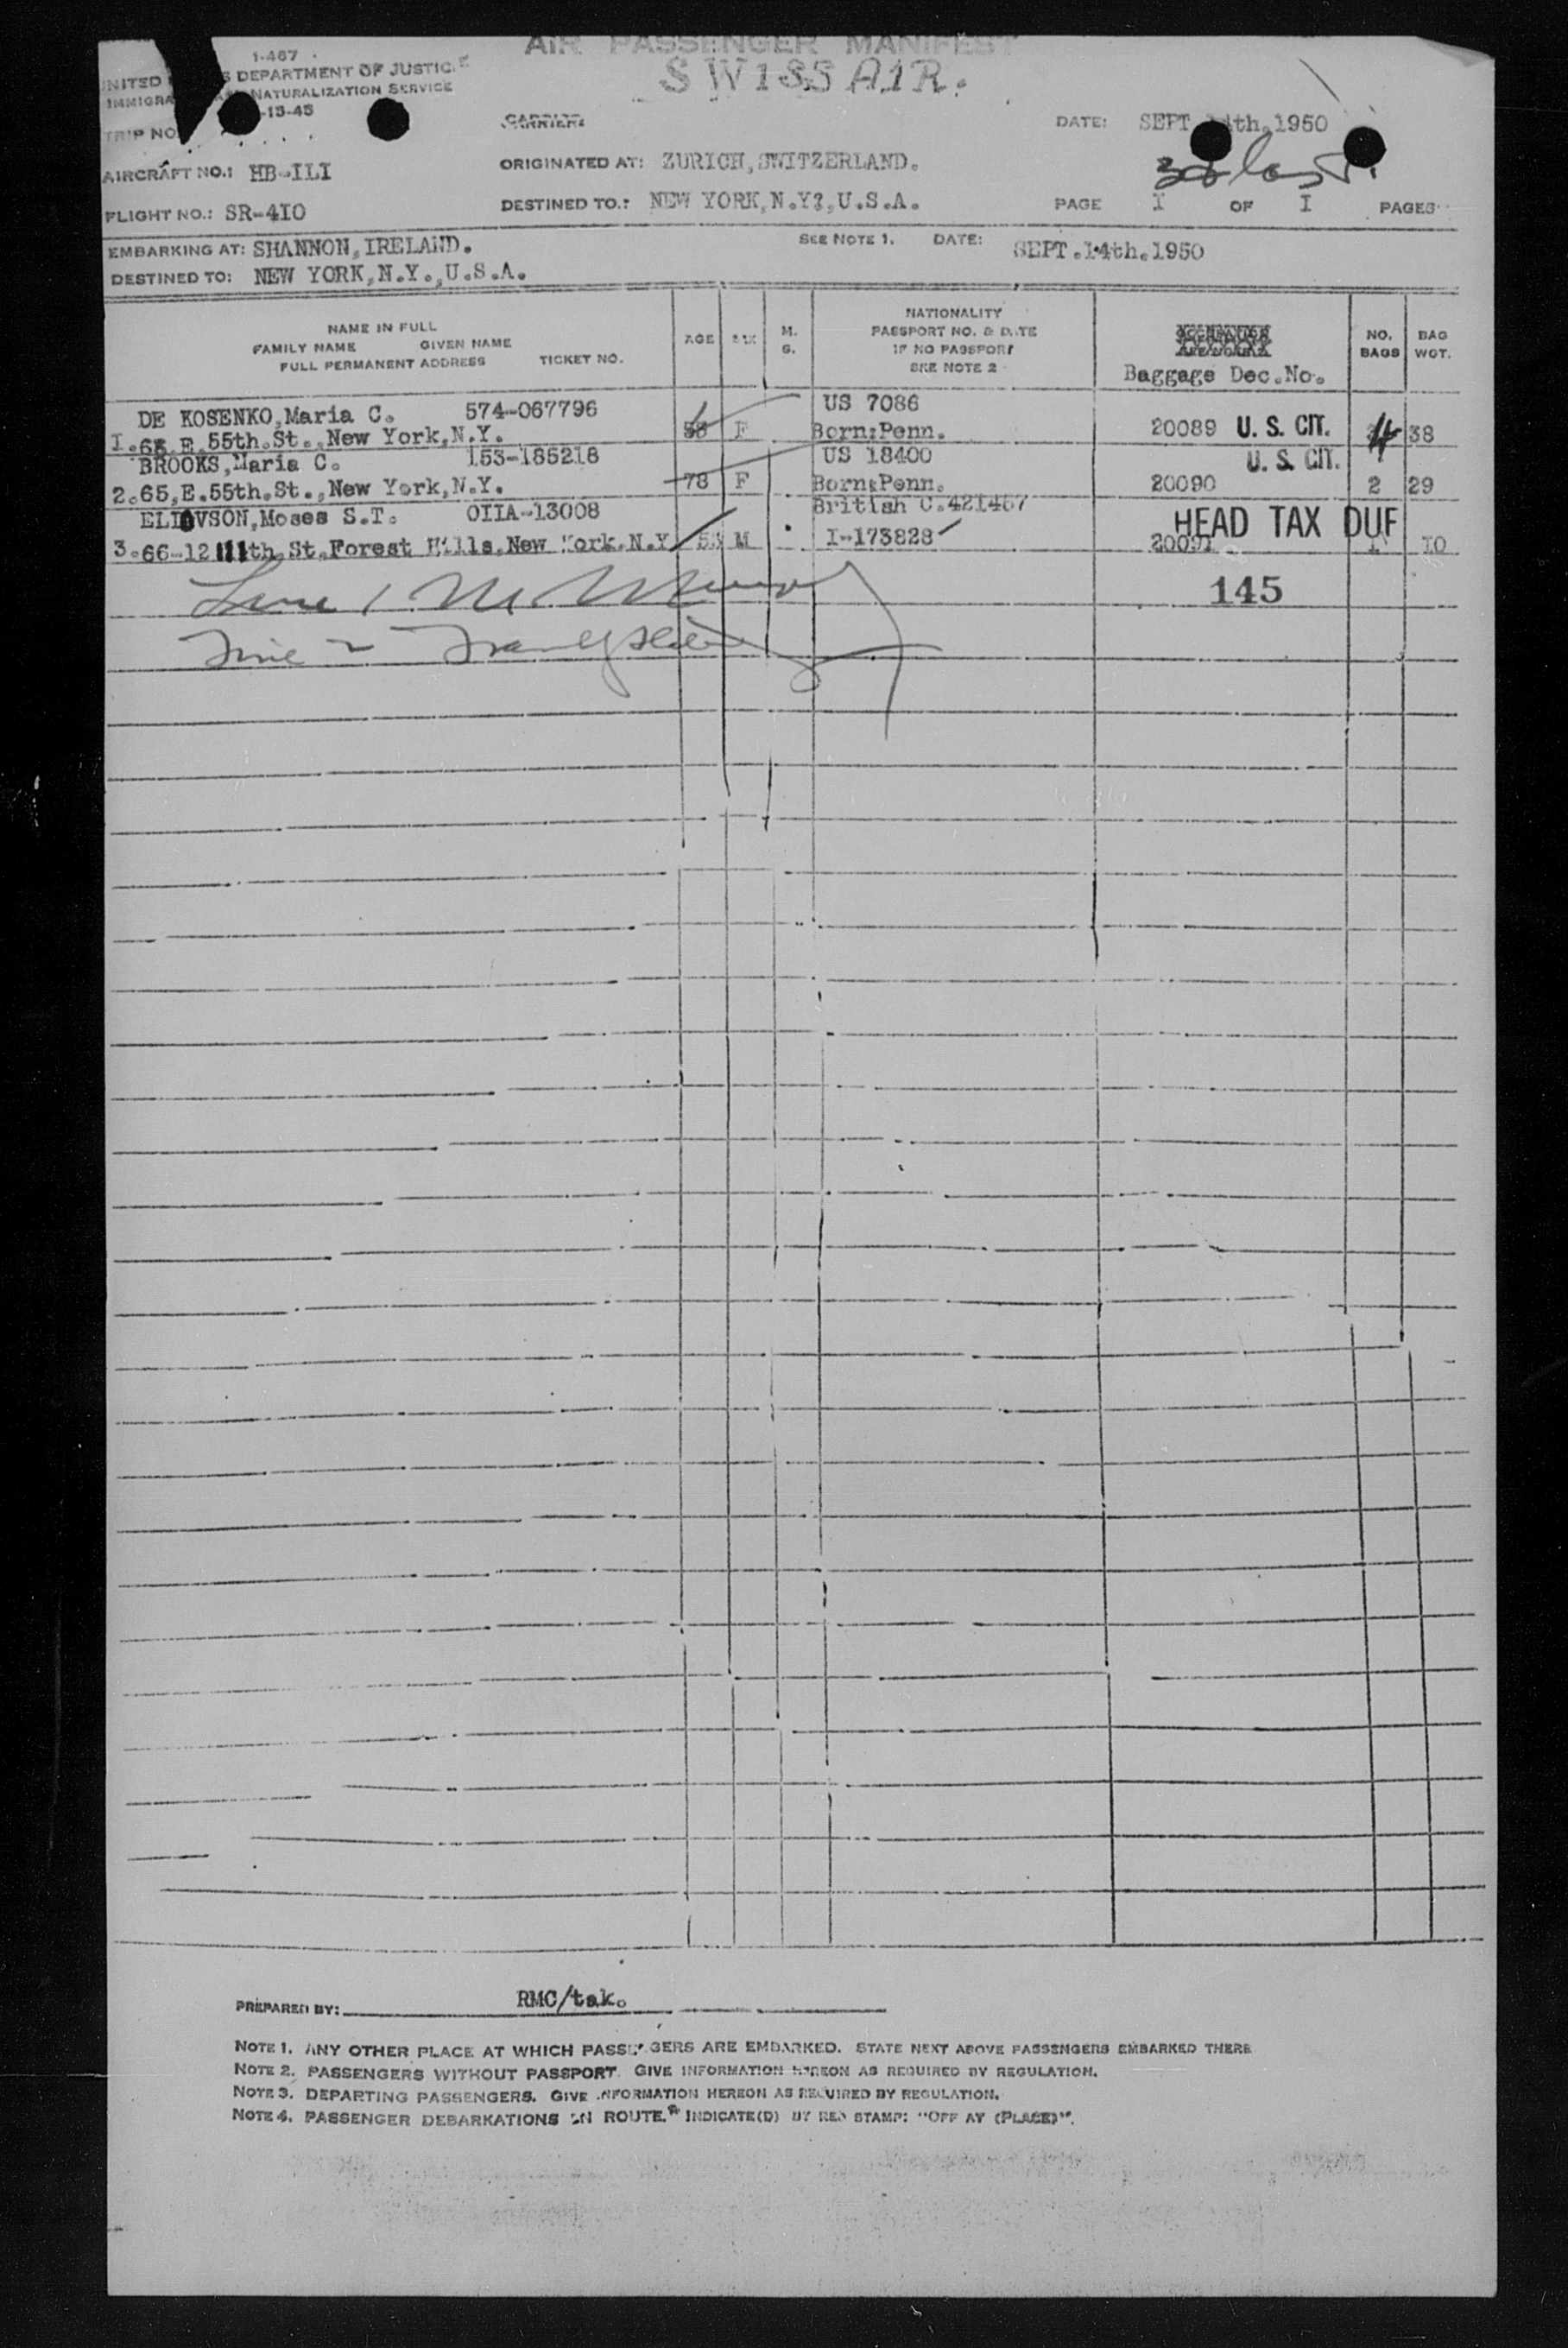 AIR PASSENGER MANIFEST
SWISSAIR.
I-467
UNITED S DEPARTMENT OF JUSTICE
IMMIGRA NATURALIZATION SERVICE
-15-45
TRIP NO.
CARRIER:
DATE: SEPT. 14th.1950
AIRCRAFT NO.: HB-ILI
ORIGINATED AT: ZURICH,SWITZERLAND.
FLIGHT NO.: SR-4I0
DESTINED TO.: NEW YORK,N.Y?,U.S.A.
PAGE I OF I PAGES
EMBARKING AT: SHANNON,IRELAND.
SEE NOTE 1. DATE: SEPT.14th.1950
DESTINED TO: NEW YORK,N.Y.,U.S.A.
NAME IN FULL
FAMILY NAME GIVEN NAME
FULL PERMANENT ADDRESS TICKET NO.
AGE SEX M. S.
NATIONALITY
PASSPORT NO. & DATE
IF NO PASSPORT
SEE NOTE 2
Baggage Dec.No.
NO. BAGS
BAG WGT.
DE KOSENKO,Maria C. 574-067796 US 7086
I.65 E.55th.St.,New York,N.Y. 58 F Born:Penn. 20089 U. S. CIT. 4 38
BROOKS,Maria C. 153-185218 US 18400 U. S. CIT.
2.65,E.55th.St.,New York,N.Y. 78 F Born:Penn. 20090 2 29
ELIOVSON,Moses S.T. OIIA-13008 British C.421467
3.66-12 111th.St.Forest Hills,New York.N.Y. M I-173828 20091 HEAD TAX DUE 1 I0
145
PREPARED BY: RMC/tak.
NOTE 1. ANY OTHER PLACE AT WHICH PASSENGERS ARE EMBARKED. STATE NEXT ABOVE PASSENGERS EMBARKED THERE
NOTE 2. PASSENGERS WITHOUT PASSPORT. GIVE INFORMATION HEREON AS REQUIRED BY REGULATION.
NOTE 3. DEPARTING PASSENGERS. GIVE INFORMATION HEREON AS REQUIRED BY REGULATION.
NOTE 4. PASSENGER DEBARKATIONS EN ROUTE. INDICATE(D) BY RED STAMP: "OFF AT (PLACE)".